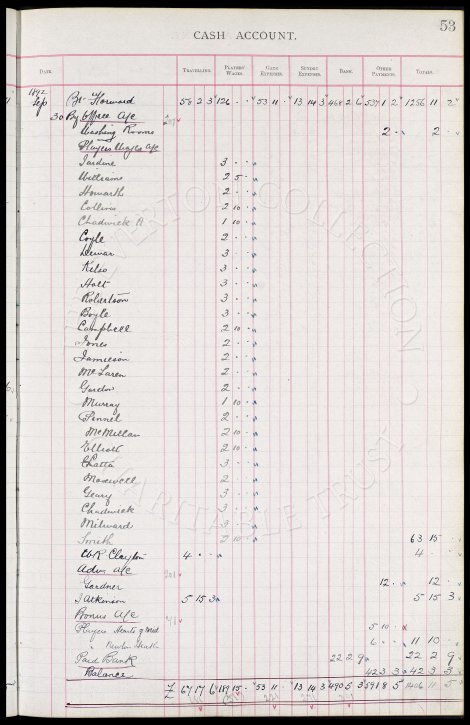 53
CASH ACCOUNT.
DATE. TRAVELLING. PLAYERS' WAGES. GATE EXPENSES. SUNDRY EXPENSES. BANK. OTHER PAYMENTS. TOTALS.
1892
Sep Bt Forward 58 2 3 126 - - 53 11 - 13 14 3 468 2 6 537 1 2 1256 11 2
30 By Office A/c
Washing Rooms 2 - - 2 - -
Players Wages A/c
Jardine 3 - -
Williams 2 5 -
Howarth 2 - -
Collins 2 10 -
Chadwick A 1 10 -
Coyle 2 - -
Dewar 3 - -
Kelso 3 - -
Holt 3 - -
Robertson 3 - -
Boyle 3 - -
Campbell 2 10 -
Jones 2 - -
Jamieson 2 - -
McLaren 2 - -
Gordon 2 - -
Murray 1 10 -
Pennel 2 - -
McMillan 2 10 -
Elliott 2 10 -
Latta 3 - -
Maxwell 2 - -
Geary 3 - -
Chadwick 3 - -
Milward 3 - -
Smith 2 10 - 63 15 -
W R Clayton 4 - - 4 - -
Advs A/c 201
Gardner 12 - - 12 - -
J Atkinson 5 15 3 5 15 3
Bonus A/c
Players Hearts 5 10 -
" Newton Heath 6 - - 11 10 -
Paid Bank 22 2 9 22 2 9
Balance 42 3 3 42 3 3
£ 67 17 6 189 15 - 53 11 - 13 14 3 490 5 3 591 8 5 1406 11 5
EVERTON COLLECTION
CHARITABLE TRUST